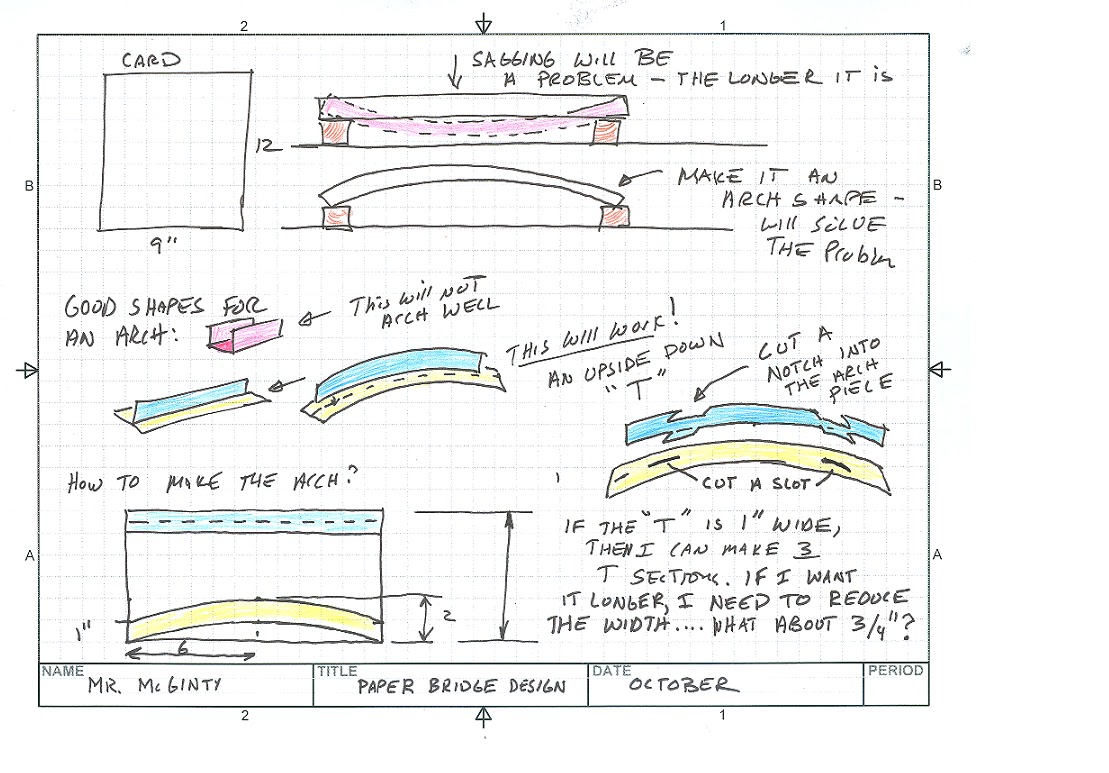 2
1
CARD
SAGGING WILL BE
A PROBLEM - THE LONGER IT IS
12
B
B
MAKE IT AN
ARCH SHAPE -
WILL SOLVE
THE Problem
9"
GOOD SHAPES FOR
AN ARCH:
This will NOT
ARCH WELL
THIS WILL WORK!
AN UPSIDE DOWN
"T"
CUT A
NOTCH INTO
THE ARCH
PIECE
CUT A SLOT
HOW TO MAKE THE ARCH?
IF THE "T" IS 1" WIDE,
THEN I CAN MAKE 3
T SECTIONS. IF I WANT
IT LONGER, I NEED TO REDUCE
THE WIDTH.... WHAT ABOUT 3/4"?
A
A
1"
2
6
NAME
MR. McGINTY
TITLE
PAPER BRIDGE DESIGN
DATE
OCTOBER
PERIOD
2
1